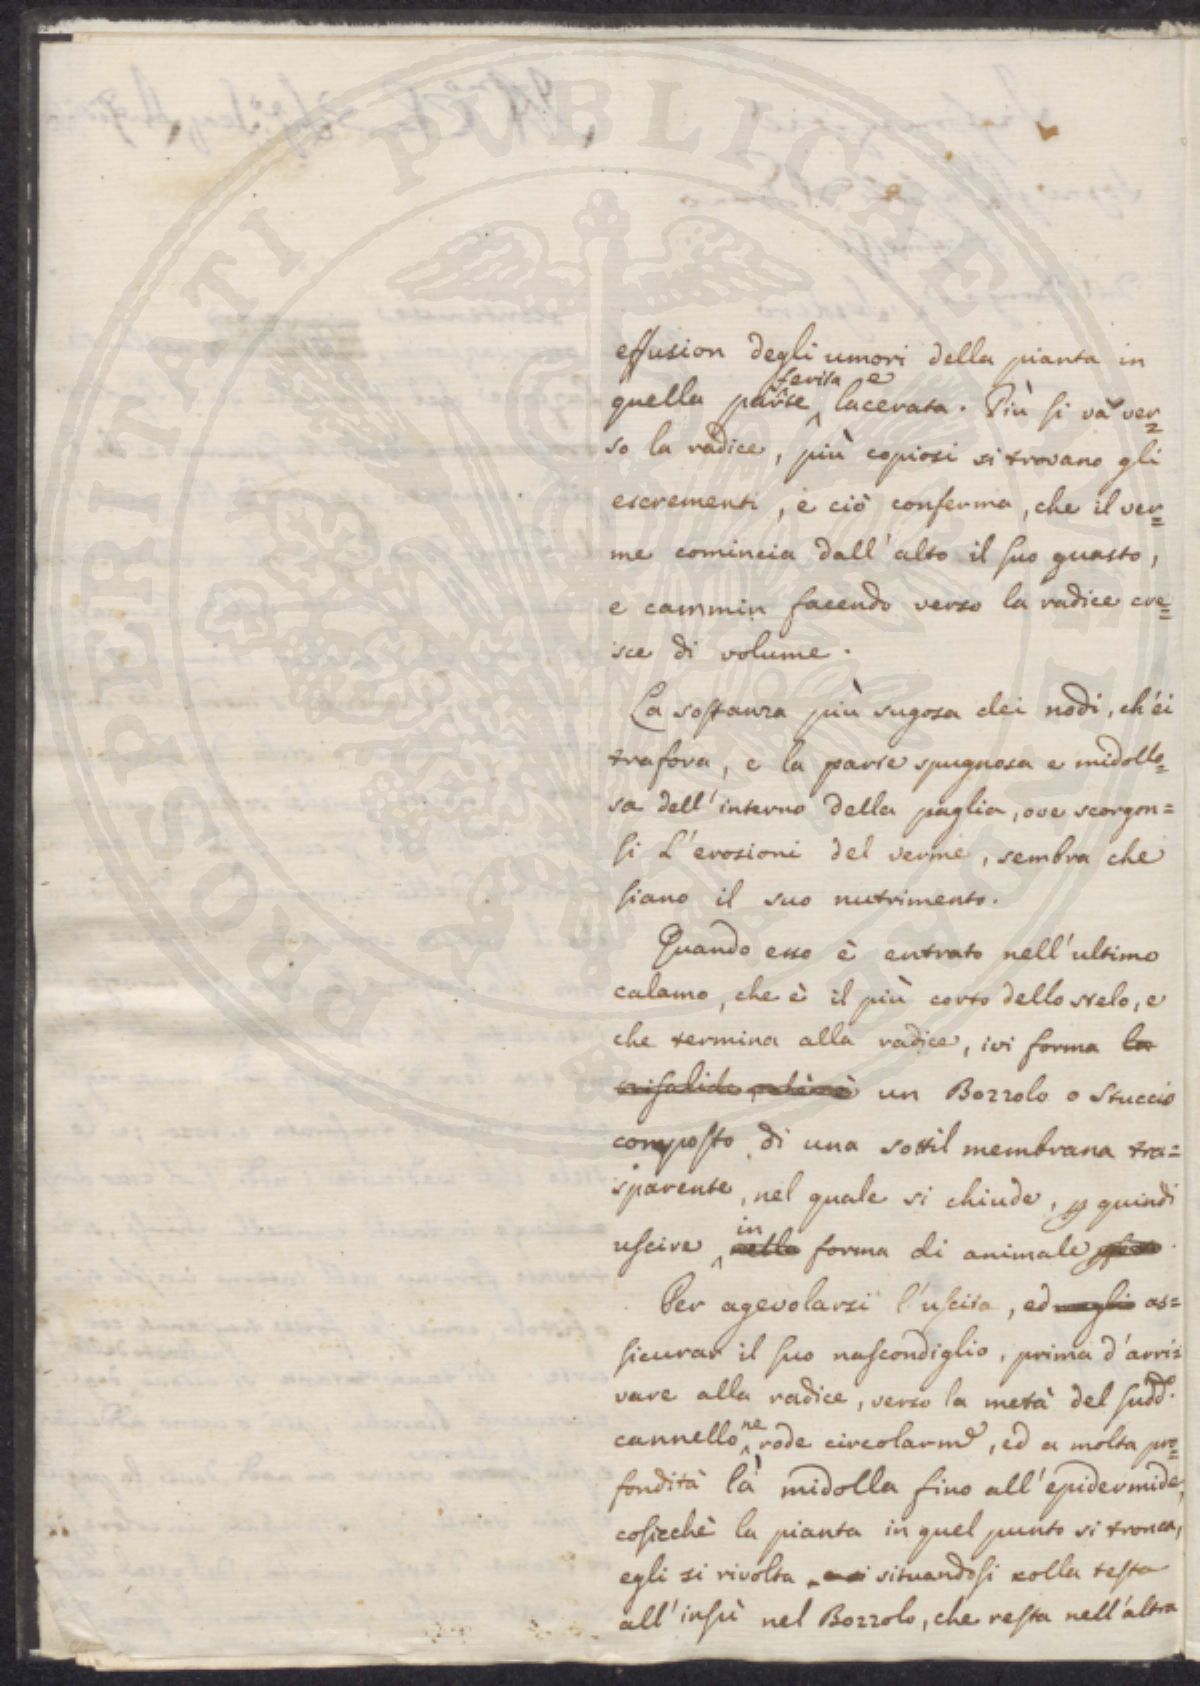 effusion degli umori della pianta in
quella parte ferita e lacerata. Più si và ver=
so la radice, più copiosi si trovano gli
escrementi, e ciò conferma, che il ver=
me comincia dall'alto il suo guasto,
e cammin facendo verso la radice cre=
sce di volume.
La sostanza più sugosa dei nodi, ch'ei
trafora, e la parte spugnosa e midollo=
sa dell'interno della paglia, ove scorgon=
si l'erosioni del verme, sembra che
siano il suo nutrimento.
Quando esso è entrato nell'ultimo
calamo, che è il più corto dello stelo, e
che termina alla radice, ivi forma la
crisalide un Bozzolo o stuccio
composto di una sottil membrana tra=
sparente, nel quale si chiude, p quindi
uscire in nella forma di animale
Per agevolarsi l'uscita, ed meglio as=
sicurar il suo nascondiglio, prima d'arri=
vare alla radice, verso la metà del sudd.
cannello ne rode circolarme, ed a molta pro=
fondità la midolla fino all'epidermide,
cosicchè la pianta in quel punto si tronca,
egli si rivolta situandosi colla testa
all'insù nel Bozzolo, che resta nell'altra
PROSPERITATI PUBLICAE AUGENDAE